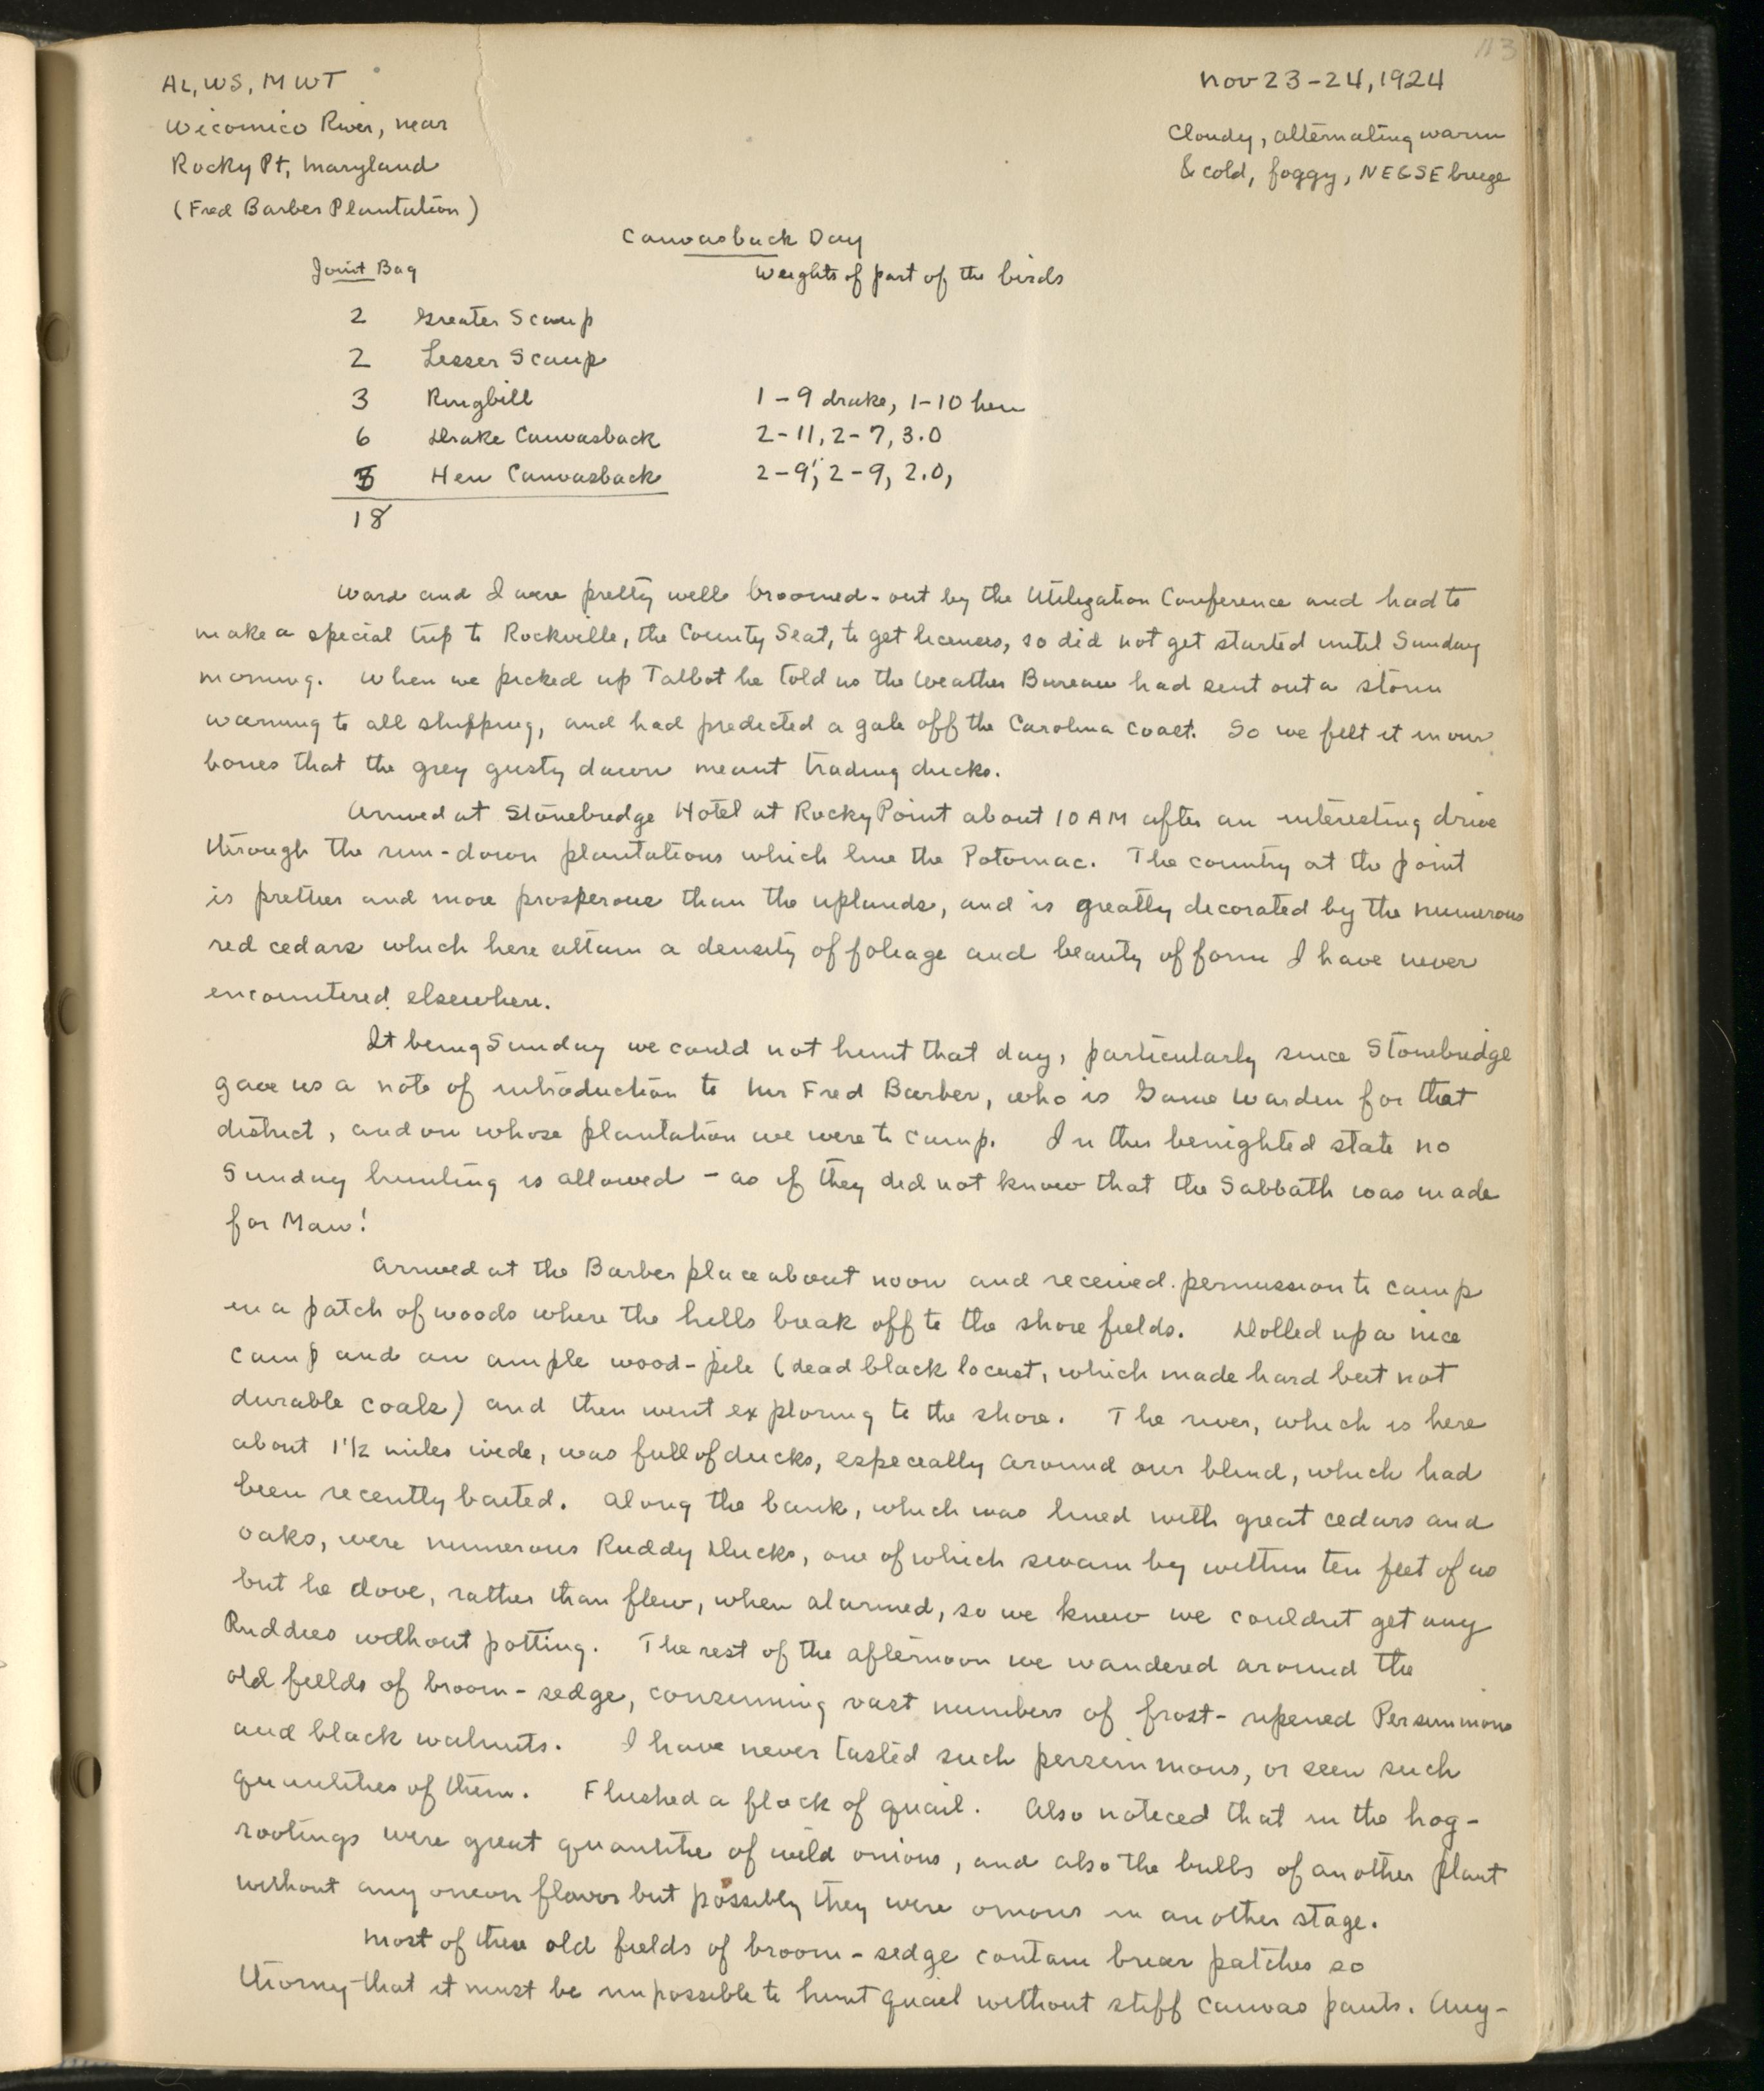 113
AL, WS, MWT
Nov 23-24, 1924
Wicomico River, near
Cloudy, alternating warm
Rocky Pt, Maryland
& cold, foggy, NE&SE breeze
(Fred Barber Plantation)
Canvasback Day
Joint Bag
Weights of part of the birds
2 Greater Scaup
2 Lesser Scaup
3 Ringbill 1-9 drake, 1-10 hen
6 Drake Canvasback 2-11, 2-7, 3.0
5 Hen Canvasback 2-9, 2-9, 2.0,
18
Ward and I were pretty well broomed-out by the Utilization Conference and had to
make a special trip to Rockville, the County Seat, to get licences, so did not get started until Sunday
morning. When we picked up Talbot he told us the Weather Bureau had sent out a storm
warning to all shipping, and had predicted a gale off the Carolina Coast. So we felt it in our
bones that the grey gusty dawn meant trading ducks.
Arrived at Stonebridge Hotel at Rocky Point about 10 AM after an interesting drive
through the run-down plantations which line the Potomac. The country at the point
is prettier and more prosperous than the uplands, and is greatly decorated by the numerous
red cedars which here attain a density of foliage and beauty of form I have never
encountered elsewhere.
It being Sunday we could not hunt that day, particularly since Stonebridge
gave us a note of introduction to Mr Fred Barber, who is Game Warden for that
district, and on whose plantation we were to camp. In this benighted state no
Sunday hunting is allowed - as if they did not know that the Sabbath was made
for Man!
Arrived at the Barber place about noon and received permission to camp
in a patch of woods where the hills break off to the shore fields. Dolled up a nice
camp and an ample wood-pile (dead black locust, which made hard but not
durable coals) and then went exploring to the shore. The river, which is here
about 1 1/2 miles wide, was full of ducks, especially around our blind, which had
been recently baited. Along the bank, which was lined with great cedars and
oaks, were numerous Ruddy Ducks, one of which swam by within ten feet of us
but he dove, rather than flew, when alarmed, so we knew we couldnt get any
Ruddies without potting. The rest of the afternoon we wandered around the
old fields of broom-sedge, consuming vast numbers of frost-ripened Persimmons
and black walnuts. I have never tasted such persimmons, or seen such
quantities of them. Flushed a flock of quail. Also noticed that in the hog-
rootings were great quantities of wild onions, and also the bulbs of another plant
without any onion flavor but possibly they were onions in another stage.
Most of these old fields of broom-sedge contain briar patches so
thorny that it must be impossible to hunt quail without stiff canvas pants. Any-